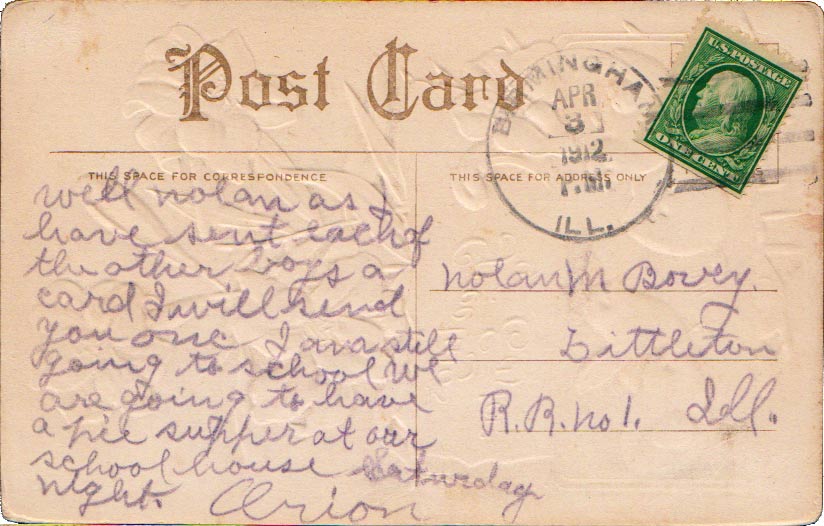 Post Card
THIS SPACE FOR CORRESPONDENCE
well nolan as I
have sent each of
the other boys a
card I will send
you one I am still
going to school We
are going to have
a pie supper at our
school house Saturday
night. Orion
THIS SPACE FOR ADDRESS ONLY
BIRMINGHAM
APR
3
1912
P.M.
ILL.
U.S. POSTAGE
ONE CENT
Nolan M Bovey.
Littleton
R.R. no 1. Ill.